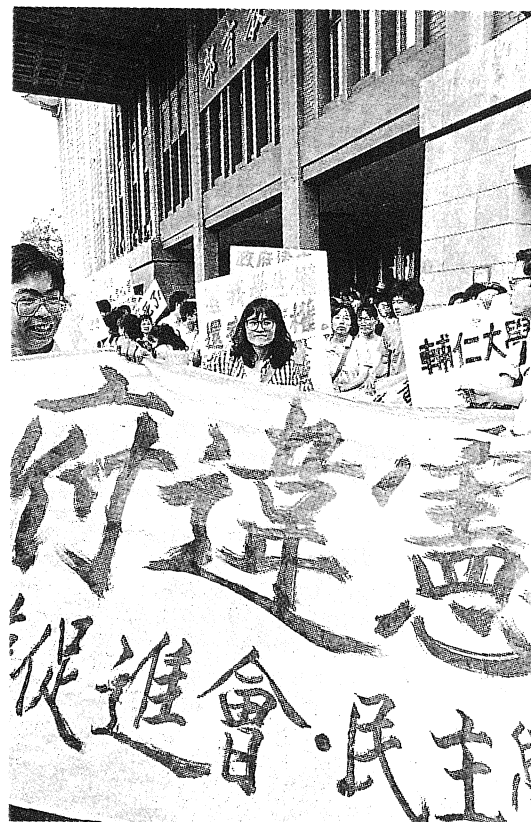 教育部
政府
輔仁大學
府違憲
促進會·民主